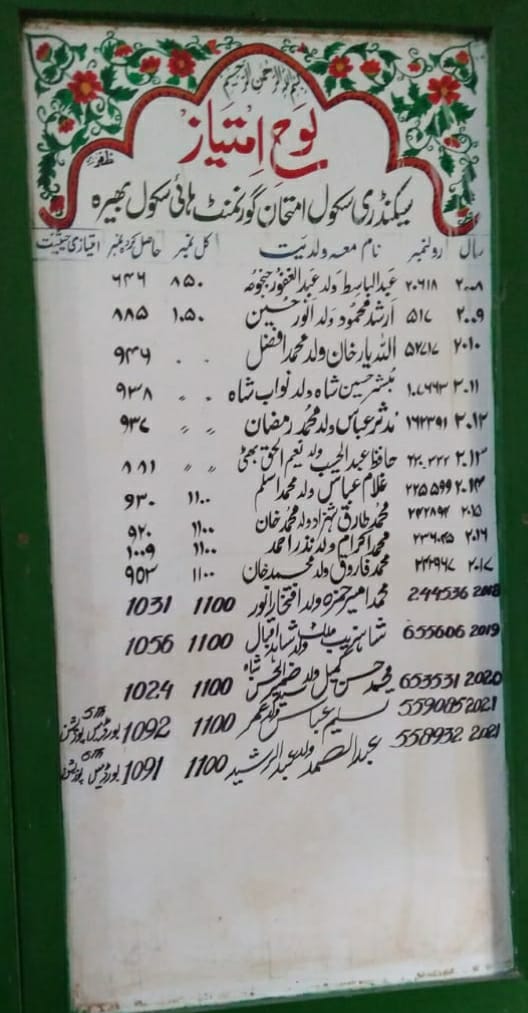 بسم اللہ الرحمن الرحیم
لوحِ امتیاز
ظفر
سیکنڈری سکول امتحان گورنمنٹ ہائی سکول بھیرہ
سال رولنمبر نام معہ ولدیت کل نمبر حاصل کردہ نمبر امتیازی حیثیت
۲۰۰۸ ۲۰۶۱۸ عبدالباسط ولد عبدالغفور جنجوعہ ۸۵۰ ۶۴۶
۲۰۰۹ ۵۱۷ ارشد محمود ولد انور حسین ۱۰۵۰ ۸۸۵
۲۰۱۰ ۵۲۷۱۷ اللہ یار خان ولد محمد افضل 〃 〃 ۹۴۶
۲۰۱۱ مبشر حسین شاہ ولد نواب شاہ 〃 〃 ۹۳۸
۲۰۱۲ ۱۶۲۳۹۱ مدثر عباس ولد محمد رمضان 〃 〃 ۹۳۷
۲۰۱۳ حافظ عبدالحسیب ولد نعیم الحق بھٹی 〃 〃 ۸۸۱
۲۰۱۴ ۲۲۵۵۹۹ غلام عباس ولد محمد اسلم ۱۱۰۰ ۹۳۰
۲۰۱۵ ۲۴۲۸۹۴ محمد طارق شہزاد ولد محمد خان ۱۱۰۰ ۹۲۰
۲۰۱۶ ۲۳۶۰۴۵ محمد اکرام ولد نذر احمد ۱۱۰۰ ۱۰۰۹
۲۰۱۷ ۲۴۲۹۶۷ محمد فاروق ولد محمد خان ۱۱۰۰ ۹۵۳
2018 244536 محمد امیر حمزہ ولد افتخار انور 1100 1031
2019 655606 شاہزیب ملک ولد شاہد اقبال 1100 1056
2020 653531 محمد حسن کمیل ولد سید ضمیر الحسن شاہ 1100 1024
2021 559085 نسیم عباس ولد عمر 1100 1092 5th بورڈ میں پوزیشن
2021 558932 عبدالصمد ولد عبدالرشید 1100 1091 6th بورڈ میں پوزیشن